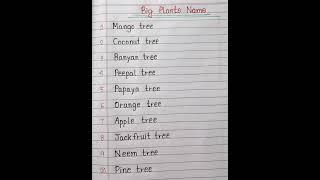 Big Plants Name
1 Mango tree
2 Coconut tree
3 Banyan tree
4 Peepal tree
5 Papaya tree
6 Orange tree
7 Apple tree
8 Jackfruit tree
9 Neem tree
10 Pine tree